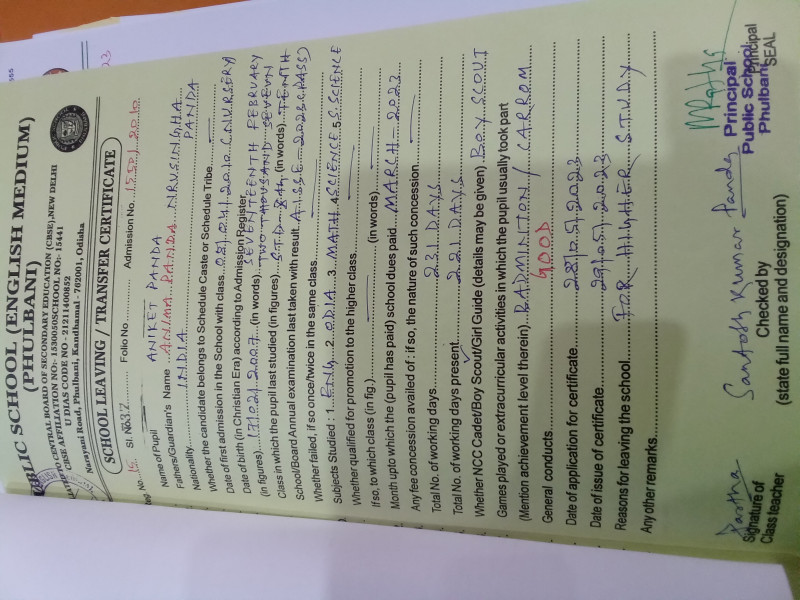 PUBLIC SCHOOL (ENGLISH MEDIUM)
(PHULBANI)
CENTRAL BOARD OF SECONDARY EDUCATION (CBSE), NEW DELHI
CBSE AFFILIATION NO:- 1530050SCHOOL NO:- 15441
U DIAS CODE NO - 21211400852
Narayani Road, Phulbani, Kandhamal - 762001, Odisha
SCHOOL LEAVING / TRANSFER CERTIFICATE
No. 16 Sl. No. 37 Folio No. Admission No. 1550/2010
Name of Pupil ANIKET PANDA
Famers/Guardian's Name ANIMA PANDA NRUSINGHA PANDA
Nationality INDIA
Whether the candidate belongs to Schedule Caste or Schedule Tribe
Date of first admission in the School with class 05/04/2010 (NURSERY)
Date of birth (in Christian Era) according to Admission Register SEVENTEENTH FEBRUARY
(in figures) 17/02/2007 (in words) TWO THOUSAND SEVEN
Class in which the pupil last studied (in figures) STD-X (in words) TENTH
School/Board Annual examination last taken with result AISSE-2023 (PASS)
Whether failed, if so once/twice in the same class
Subjects Studied : 1. ENG 2. ODIA 3. MATH 4. SCIENCE 5. S. SCIENCE
Whether qualified for promotion to the higher class
If so, to which class (in fig.) (in words)
Month upto which the (pupil has paid) school dues paid MARCH-2023
Any fee concession availed of : if so, the nature of such concession
Total No. of working days 231 DAYS
Total No. of working days present 221 DAYS
Whether NCC Cadet/Boy Scout/Girl Guide (details may be given) BOY SCOUT
Games played or extracurricular activities in which the pupil usually took part
(Mention achievement level therein) BADMINTON / CARROM
General conducts GOOD
Date of application for certificate 28/05/2023
Date of issue of certificate 29/05/2023
Reasons for leaving the school FOR HIGHER STUDY
Any other remarks
Santosh Kumar Panda
Signature of
Class teacher
Checked by
(state full name and designation)
Principal
SEAL
Principal
Public School
Phulbani